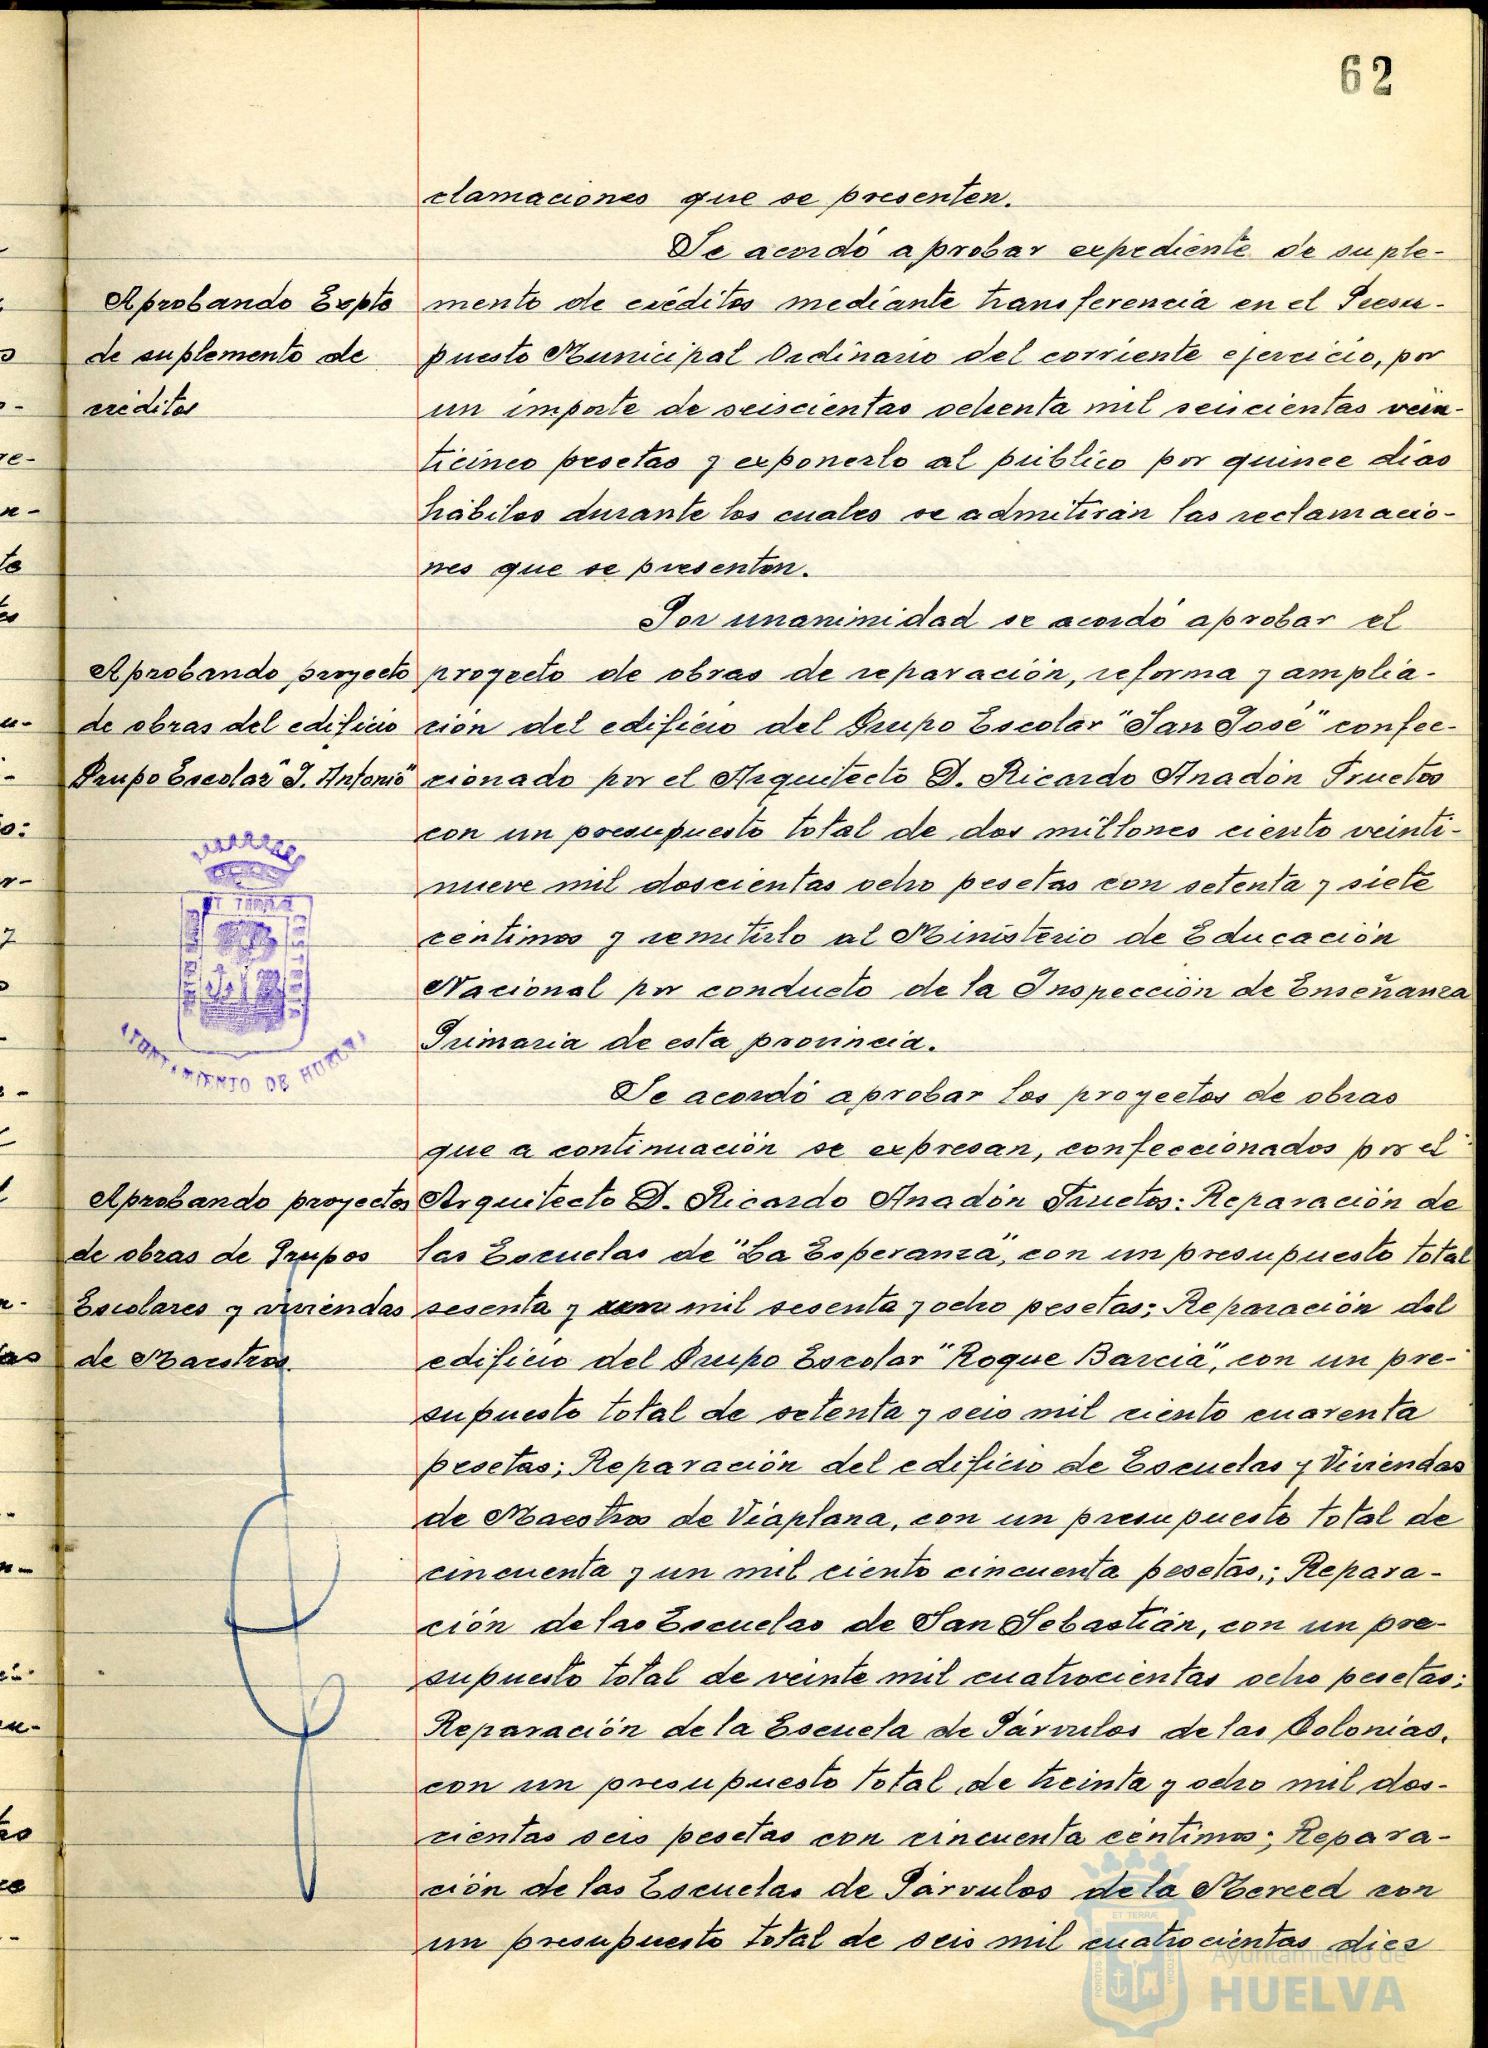 62
clamaciones que se presenten.
Se acordó aprobar expediente de suple-
Aprobando Expte
mento de créditos mediante transferencia en el Presu-
de suplemento de
puesto Municipal Ordinario del corriente ejercicio, por
créditos
un importe de seiscientas ochenta mil seiscientas vein-
ticinco pesetas y exponerlo al público por quince dias
hábiles durante los cuales se admitirán las reclamacio-
nes que se presenten.
Por unanimidad se acordó aprobar el
Aprobando proyecto
proyecto de obras de reparación, reforma y amplia-
de obras del edificio
ción del edificio del Grupo Escolar "San José" confec-
Grupo Escolar "J. Antonio"
cionado por el Arquitecto D. Ricardo Anadón Fructos
con un presupuesto total de dos millones ciento veinti-
nueve mil doscientas ocho pesetas con setenta y siete
centimos y remitirlo al Ministerio de Educación
Nacional por conducto de la Inspección de Enseñanza
Primaria de esta provincia.
ET TERRÆ
AYUNTAMIENTO DE HUELVA
Se acordó aprobar los proyectos de obras
que a continuación se expresan, confeccionados por el
Aprobando proyectos
Arquitecto D. Ricardo Anadón Fructos: Reparación de
de obras de Grupos
las Escuelas de "La Esperanza", con un presupuesto total
Escolares y viviendas
sesenta y mil sesenta y ocho pesetas; Reparación del
de Maestros.
edificio del Grupo Escolar "Roque Barcia", con un pre-
supuesto total de setenta y seis mil ciento cuarenta
pesetas; Reparación del edificio de Escuelas y Viviendas
de Maestros de Viaplana, con un presupuesto total de
cincuenta y un mil ciento cincuenta pesetas,; Repara-
ción de las Escuelas de San Sebastián, con un pre-
supuesto total de veinte mil cuatrocientas ocho pesetas;
Reparación de la Escuela de Párvulos de las Colonias,
con un presupuesto total de treinta y ocho mil dos-
cientas seis pesetas con cincuenta céntimos; Repara-
ción de las Escuelas de Párvulos de la Merced con
un presupuesto total de seis mil cuatrocientas diez
Ayuntamiento de
HUELVA